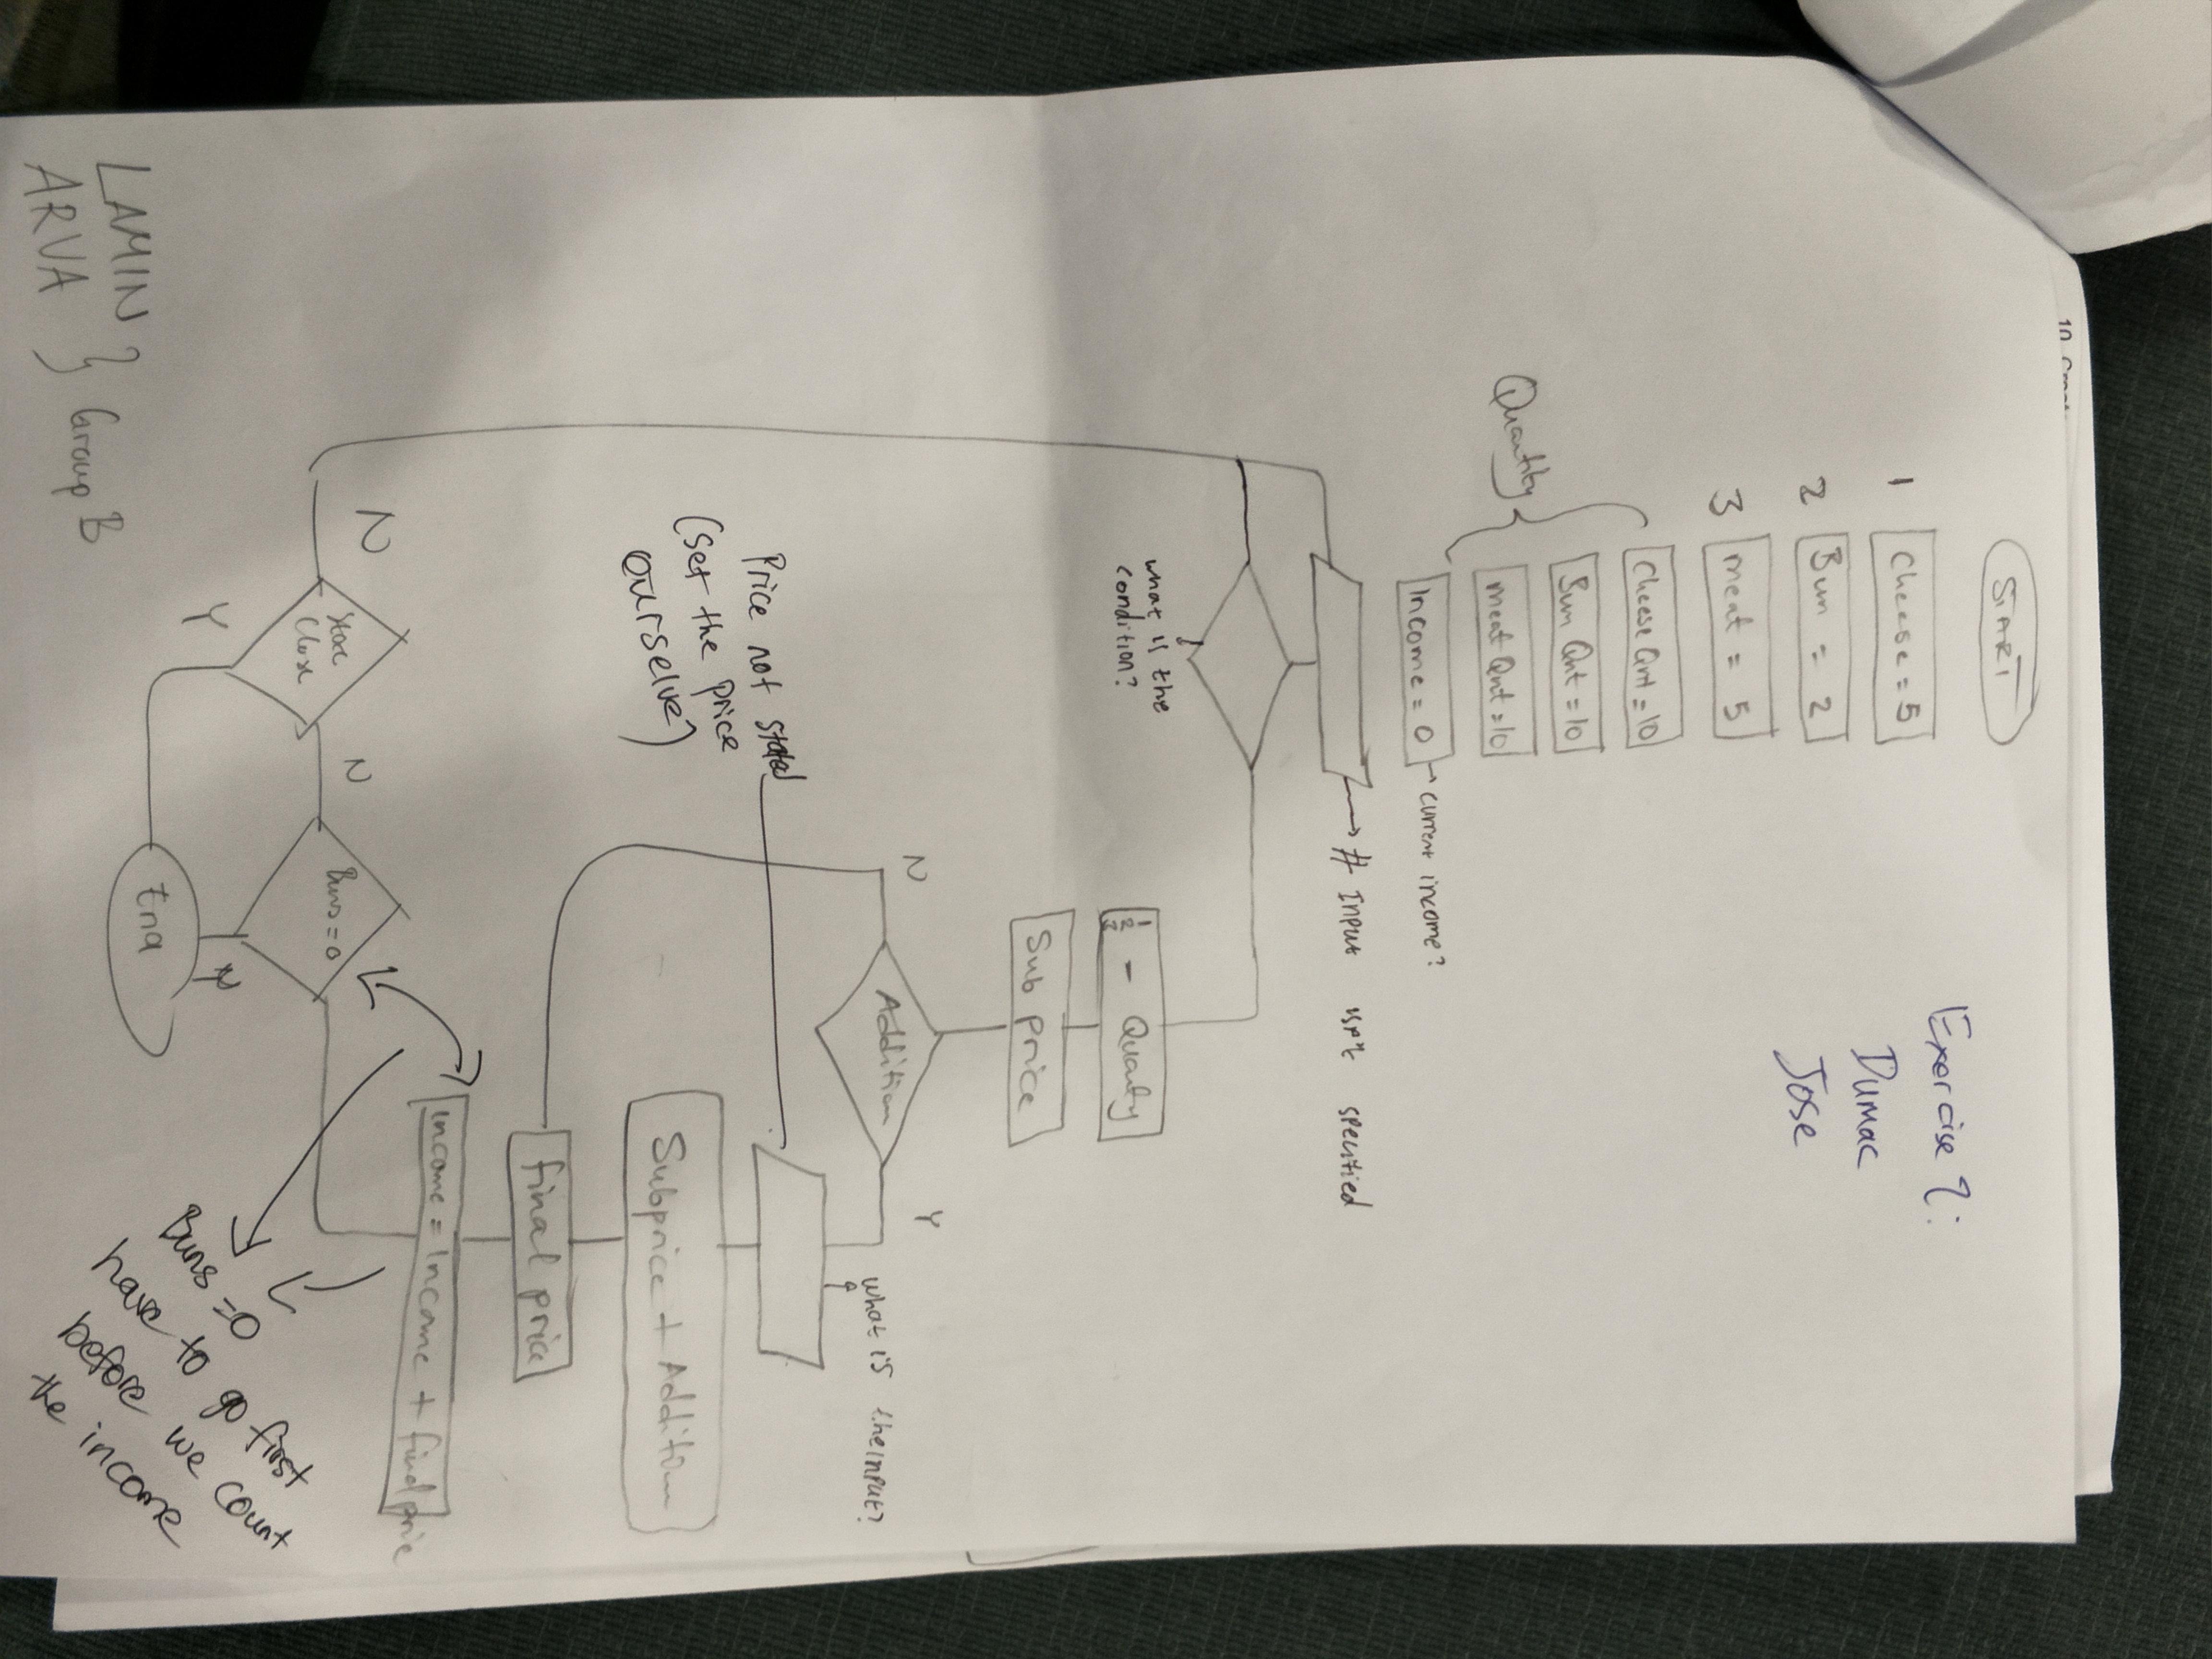 START
Exercise 7:
Dumac
Jose
1 Cheese = 5
2 Bun = 2
3 meat = 5
Quantity
Cheese Qnt = 10
Bun Qnt = 10
meat Qnt = 10
Income = 0 → current income?
→ # Input isn't specified
what is the
condition?
1
2
3
- Quanty
Sub price
N
Addition
Y
what is the input?
Price not stated
(set the price
ourselve)
Subprice + Addition
final price
Income = Income + find price
N
Store
Close
N
Buns = 0
Y
End
Buns = 0
have to go first
before we count
the income
LAMIN }
ARVA } Group B